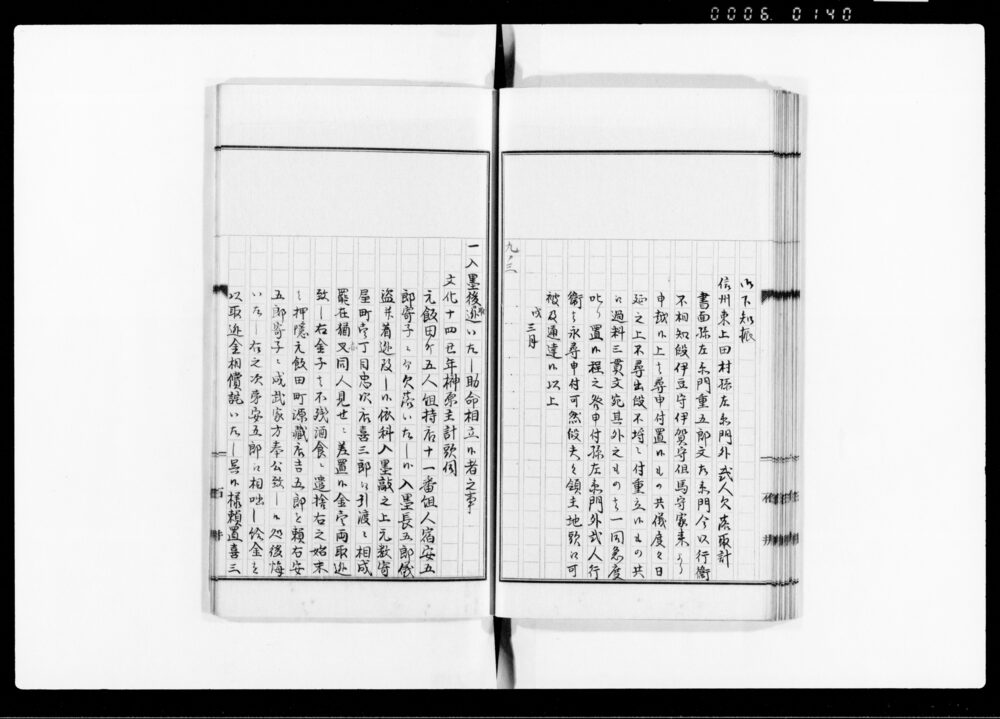 0006 0140
御下知振
信州東上田村孫左衛門外弐人欠落取計
書面孫左衛門重五郎文左衛門今以行衛
不相知段伊豆守伊賀守但馬守家来より
申越候上は尋申付置候もの共儀度々日
延之上不尋出段不埒ニ付重立候もの共
は過料三貫文宛其外之ものは一同急度
叱り置候程之咎申付孫左衛門外弐人行
衛は永尋申付可然段夫々領主地頭江可
被及通達候以上
戌三月
九ノ三
一入墨後迯いたし助命相立候者之事
文化十四丑年榊原主計頭伺
元飯田町五人組持店十一番組人宿安五
郎寄子ニ而欠落いたし候入墨長五郎儀
盗并着迯致し候依科入墨敲之上元数寄
屋町壱丁目忠次店喜三郎江引渡ニ相成
罷在猶又同人見せニ差置候金壱両取迯
致し右金子は不残酒食ニ遣捨右之始末
を押隠元飯田町源蔵店吉五郎を頼右安
五郎寄子ニ成武家方奉公致し候処後悔
いたし右之次第安五郎江相咄し給金を
以取迯金相償記いたし呉候様頼置喜三
石
井